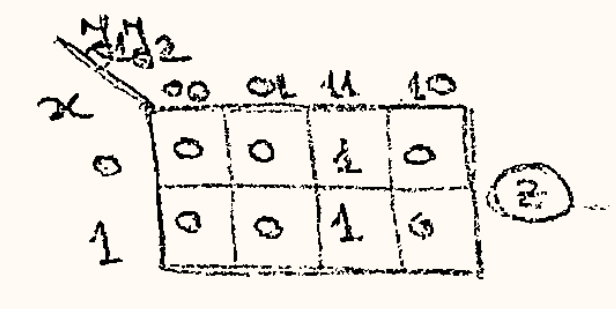 y1y2
x 00 01 11 10
0 0 0 1 0
1 0 0 1 0
2